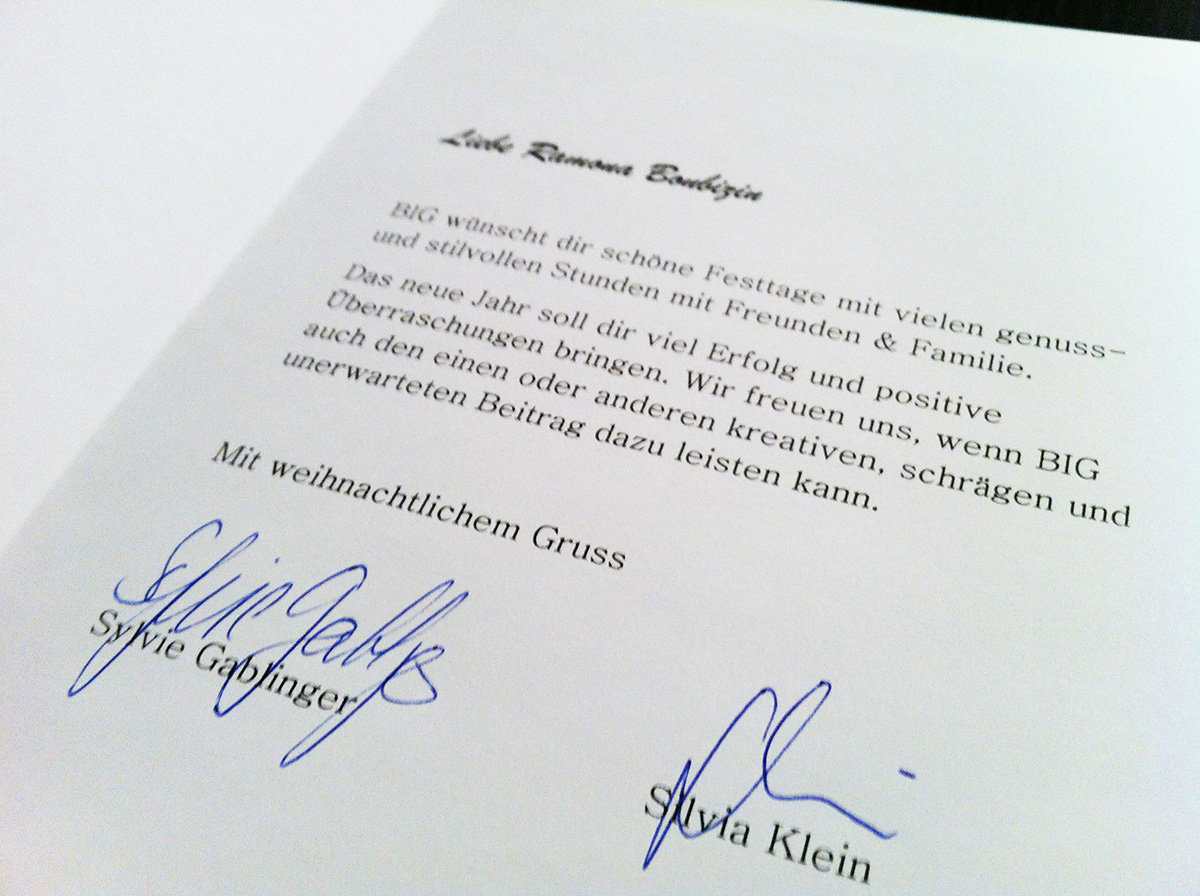 Liebe Ramona Bonbizin
BIG wünscht dir schöne Festtage mit vielen genuss-
und stilvollen Stunden mit Freunden & Familie.
Das neue Jahr soll dir viel Erfolg und positive
Überraschungen bringen. Wir freuen uns, wenn BIG
auch den einen oder anderen kreativen, schrägen und
unerwarteten Beitrag dazu leisten kann.
Mit weihnachtlichem Gruss
Sylvie Gablinger
Silvia Klein